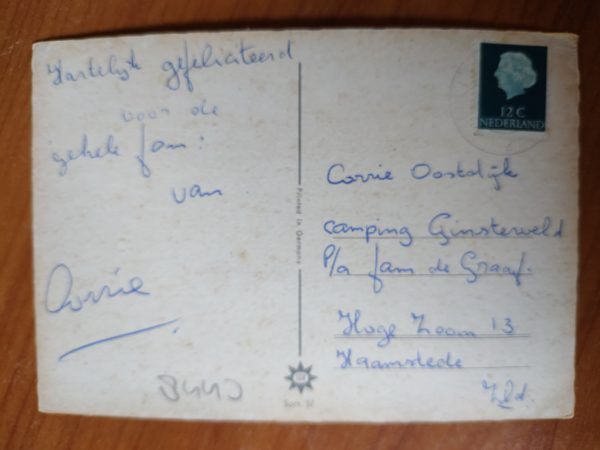 Hartelijk gefeliciteerd
voor de
gehele fam:
van
Corrie
12 C
NEDERLAND
Corrie Oostdijk
camping Ginsterveld
P/a fam de Graaf.
Hoge Zoom 13
Haamstede
Zld.
Printed in Germany